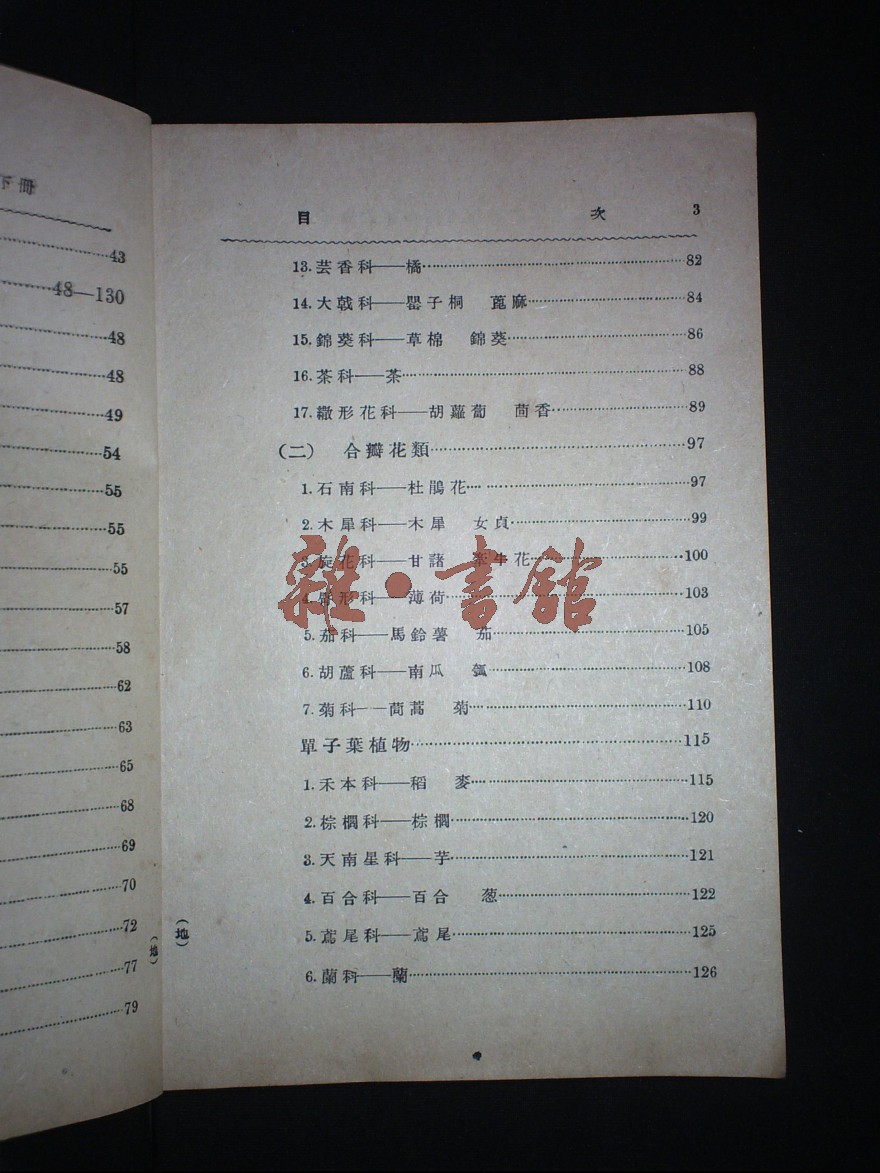 下冊
43
48—130
48
48
49
54
55
55
55
57
58
62
63
65
68
69
70
72
77
79
(地)
目 次 3
13.芸香科——橘……82
14.大戟科——罌子桐 蓖麻……84
15.錦葵科——草棉 錦葵……86
16.茶科——茶……88
17.繖形花科——胡蘿蔔 茴香……89
(二) 合瓣花類……97
1.石南科——杜鵑花……97
2.木犀科——木犀 女貞……99
3.旋花科——甘諸 牽牛花……100
4.脣形科——薄荷……103
5.茄科——馬鈴薯 茄……105
6.胡蘆科——南瓜 瓠……108
7.菊科——茼蒿 菊……110
單子葉植物……115
1.禾本科——稻 麥……115
2.棕櫚科——棕櫚……120
3.天南星科——芋……121
4.百合科——百合 葱……122
5.鳶尾科——鳶尾……125
6.蘭科——蘭……126
(地)
雜·書館